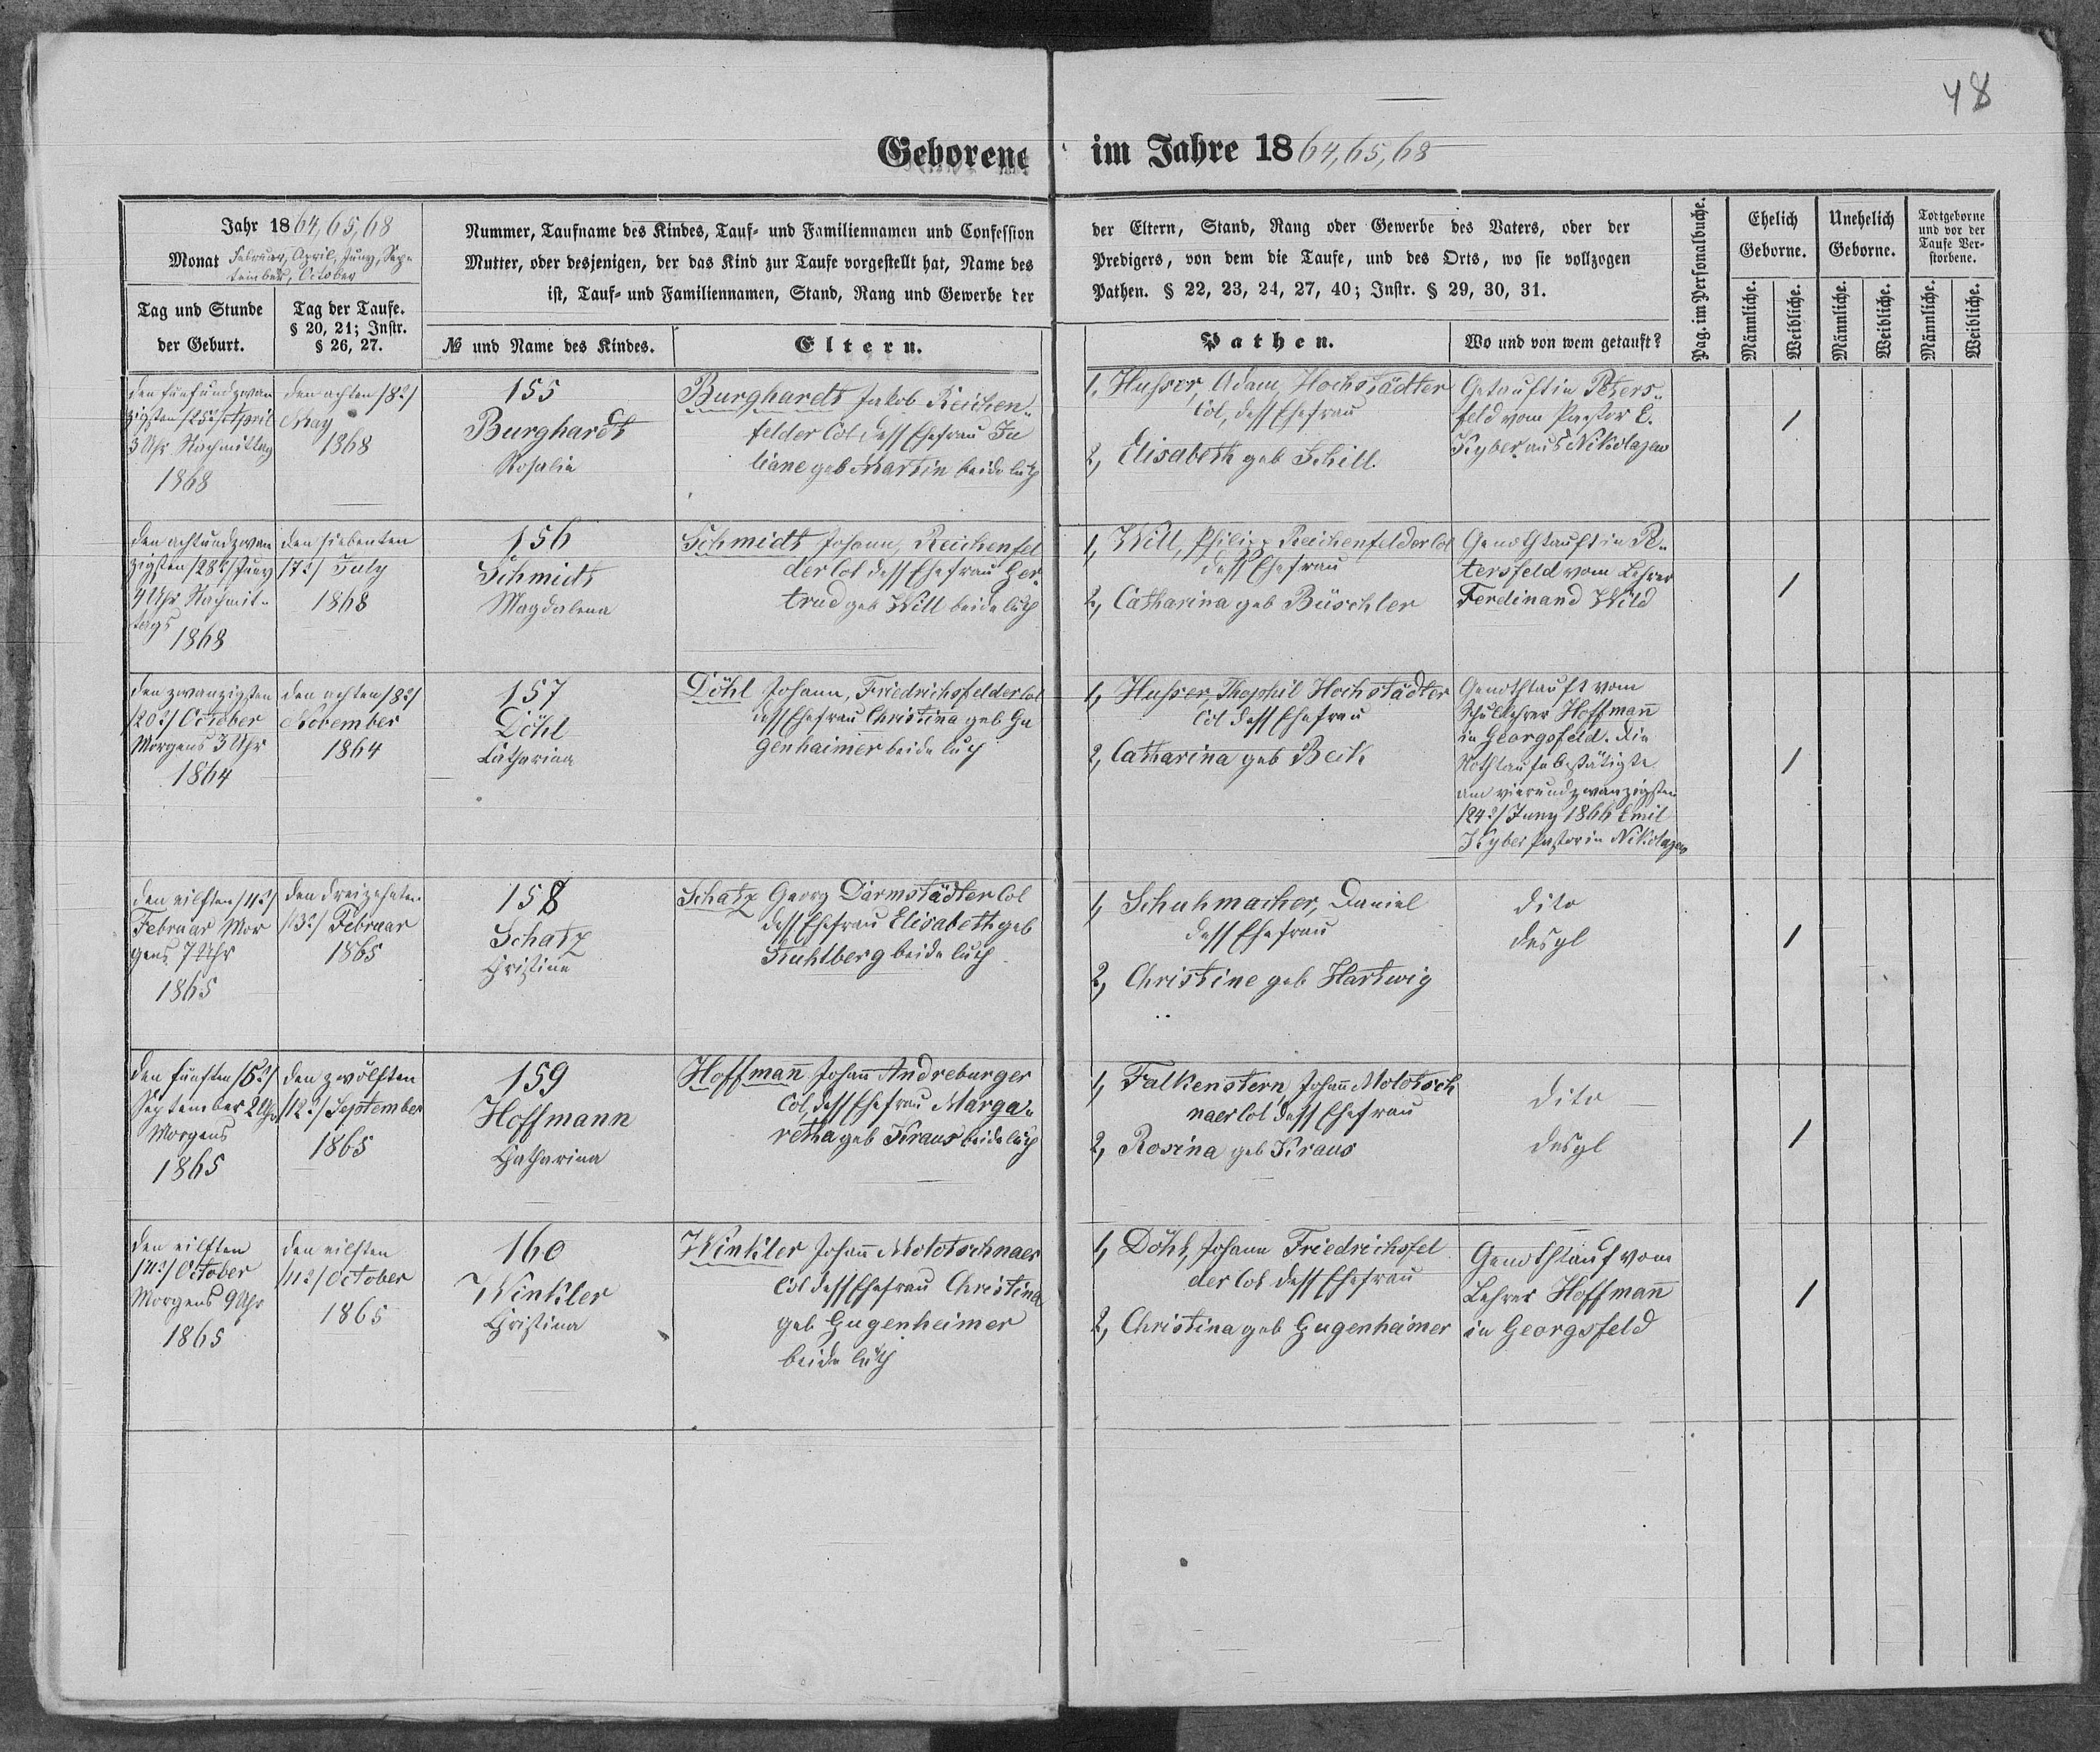 48
Geborene im Jahre 1864,65,68
Jahr 1864,65,68
Monat Februar, April, Juny, Sep-
tember, October
Tag und Stunde
der Geburt.
Tag der Taufe.
§ 20, 21; Instr.
§ 26, 27.
Nummer, Taufname des Kindes, Tauf- und Familiennamen und Confession
Mutter, oder desjenigen, der das Kind zur Taufe vorgestellt hat, Name des
ist, Tauf- und Familiennamen, Stand, Rang und Gewerbe der
№ und Name des Kindes.
Eltern.
der Eltern, Stand, Rang oder Gewerbe des Vaters, oder der
Predigers, von dem die Taufe, und des Orts, wo sie vollzogen
Pathen. § 22, 23, 24, 27, 40; Instr. § 29, 30, 31.
Pathen.
Wo und von wem getauft?
Pag. im Personalbuche.
Ehelich
Geborne.
Unehelich
Geborne.
Tortgeborne
und vor der
Taufe Ver-
storbene.
Männliche.
Weibliche.
Männliche.
Weibliche.
Männliche.
Weibliche.
den fünfundzwan
zigsten /25t/ April
3 Uhr Nachmittag
1868
den achten /8t/
May
1868
155
Burghardt
Rosalia
Burghardt Jakob Reichen-
felder Col dess Ehefrau Ju
liane geb Martin beide luth
1, Husser, Adam, Hochstädter
Col, dess Ehefrau
2, Elisabeth geb Schill.
Getauft in Peters-
feld vom Pastor E.
Kyber aus Nikolajew
1
den achtundzwan
zigsten /28t/ Juny
4 Uhr Nachmit-
tags
1868
den siebenten
/7t/ July
1868
156
Schmidt
Magdalena
Schmidt Johann, Reichenfel
der Col dess Ehefrau Ger-
trud geb Will beide luth
1, Will, Philipp Reichenfelder Col
dess Ehefrau
2, Catharina geb Büschler
Genothtauft in Pe-
tersfeld vom Lehrer
Ferdinand Wild
1
den zwanzigsten
/20t/ October
Morgens 3 Uhr
1864
den achten /8t/
November
1864
157
Döhl
Catharina
Döhl Johann, Friedrichsfelder Col
dess Ehefrau Christina geb Gu
genhaimer beide luth
1, Husser, Thophil Hochstädter
Col dess Ehefrau
2, Catharina geb Beck
Genothtauft vom
Schullehrer Hoffmañ
in Georgsfeld. Die
Nothtaufe bestätigte
am vierundzwanzigsten
/24t/ Juny 1866 Emil
Kyber Pastor in Nikolajew
1
den eilften /11t/
Februar Mor
gens 7 Uhr
1865
den dreizehnten
/13t/ Februar
1865
158
Schatz
Christine
Schatz Georg Darmstädter Col
dess Ehefrau Elisabeth geb
Kuhlberg beide luth
1, Schuhmacher, Daniel
dess Ehefrau
2, Christine geb Hartwig
dito
desgl
1
den fünften /5t/
September 2 Uhr
Morgens
1865
den zwölften
/12t/ September
1865
159
Hoffmann
Catharina
Hoffmañ Johañ Andreburger
Col, dess Ehefrau Marga-
retha geb Kraus beide luth
1, Falkenstern, Johañ Molotsch
naer Col dess Ehefrau
2, Rosina geb Kraus
dito
desgl
1
den eilften
/11t/ October
Morgens 9 Uhr
1865
den eilften
/11t/ October
1865
160
Winkler
Christina
Winkler Johañ Molotschnaer
Col dess Ehefrau Christina
geb Gugenheimer
beide luth
1, Döhl, Johann Friedrichsfel
der Col dess Ehefrau
2, Christina geb Gugenheimer
Genothtauf vom
Lehrer Hoffmañ
in Georgsfeld
1